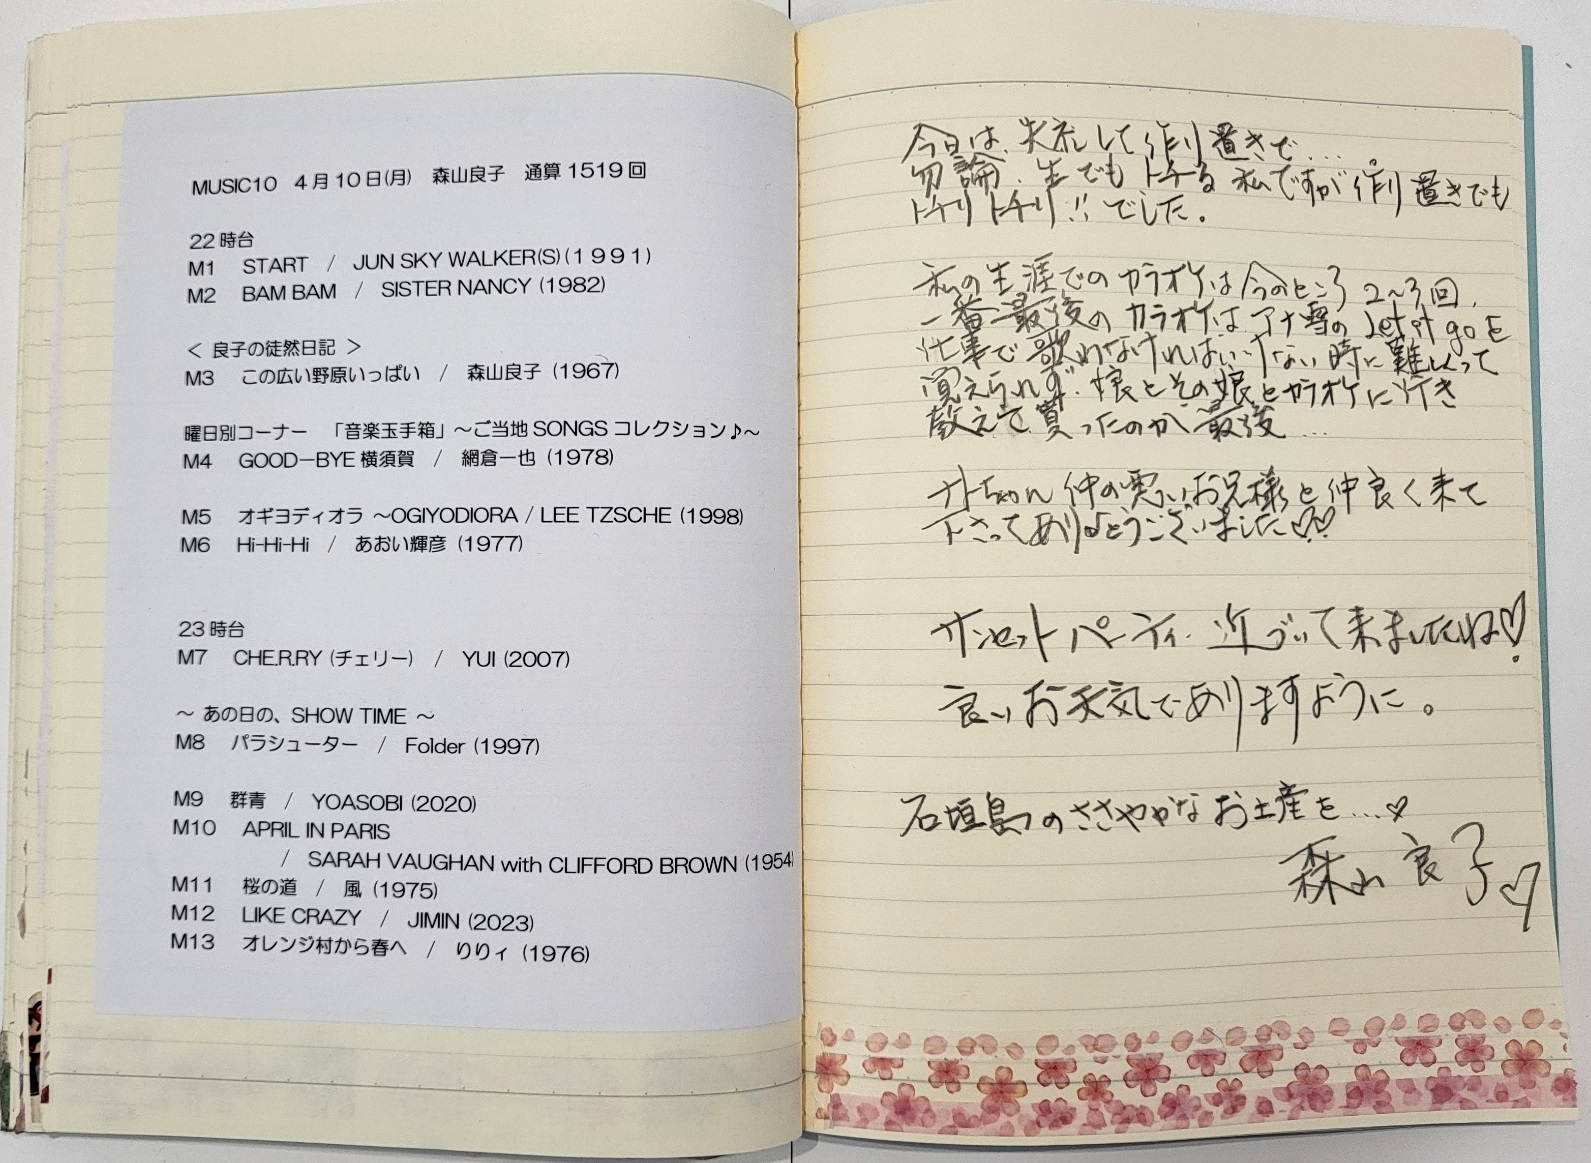 MUSIC10 4月10日(月) 森山良子 通算1519回
22時台
M1 START / JUN SKY WALKER(S)(1991)
M2 BAM BAM / SISTER NANCY (1982)
＜ 良子の徒然日記 ＞
M3 この広い野原いっぱい / 森山良子 (1967)
曜日別コーナー 「音楽玉手箱」～ご当地SONGSコレクション♪～
M4 GOOD－BYE横須賀 / 網倉一也 (1978)
M5 オギヨディオラ ～OGIYODIORA / LEE TZSCHE (1998)
M6 Hi-Hi-Hi / あおい輝彦 (1977)
23時台
M7 CHE.R.RY (チェリー) / YUI (2007)
～ あの日の、SHOW TIME ～
M8 パラシューター / Folder (1997)
M9 群青 / YOASOBI (2020)
M10 APRIL IN PARIS
/ SARAH VAUGHAN with CLIFFORD BROWN (1954)
M11 桜の道 / 風 (1975)
M12 LIKE CRAZY / JIMIN (2023)
M13 オレンジ村から春へ / りりィ (1976)
今日は、失礼して作り置きで...
勿論、生でもトチる私ですが作り置きでも
トチリトチリ!!でした。
私の生涯でのカラオケは今のところ2～3回、
一番最後のカラオケはアナ雪のLet it goを
仕事で歌わなければいけない時に難しくって
覚えられず、娘とその娘とカラオケに行き
教えて貰ったのが最後...
ナトちゃん 仲の良いお兄様と仲良く来て
下さってありがとうございました♡♡
サンセットパーティ、近づいて来ましたね♡
良いお天気でありますように。
石垣島のささやかなお土産を...♡
森山良子♡